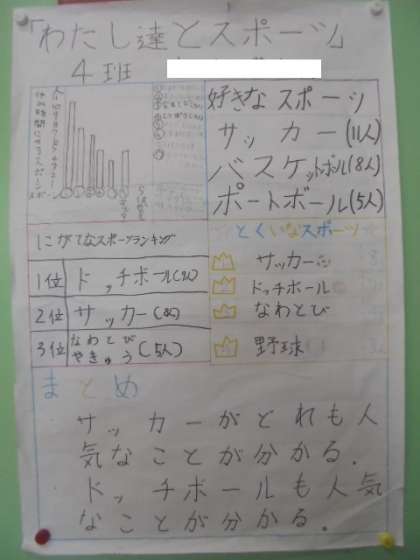 「わたし達とスポーツ」
4班
好きな スポーツ
サッカー(11人)
バスケットボール(8人)
ポートボール(5人)
にがてなスポーツランキング
1位 ドッチボール
2位 サッカー
3位 なわとび
やきゅう(5人)
とくいなスポーツ
サッカー
ドッチボール
なわとび
野球
まとめ
サッカーがとれも人
気なことが分かる.
ドッチボールも人気
なことが分かる.